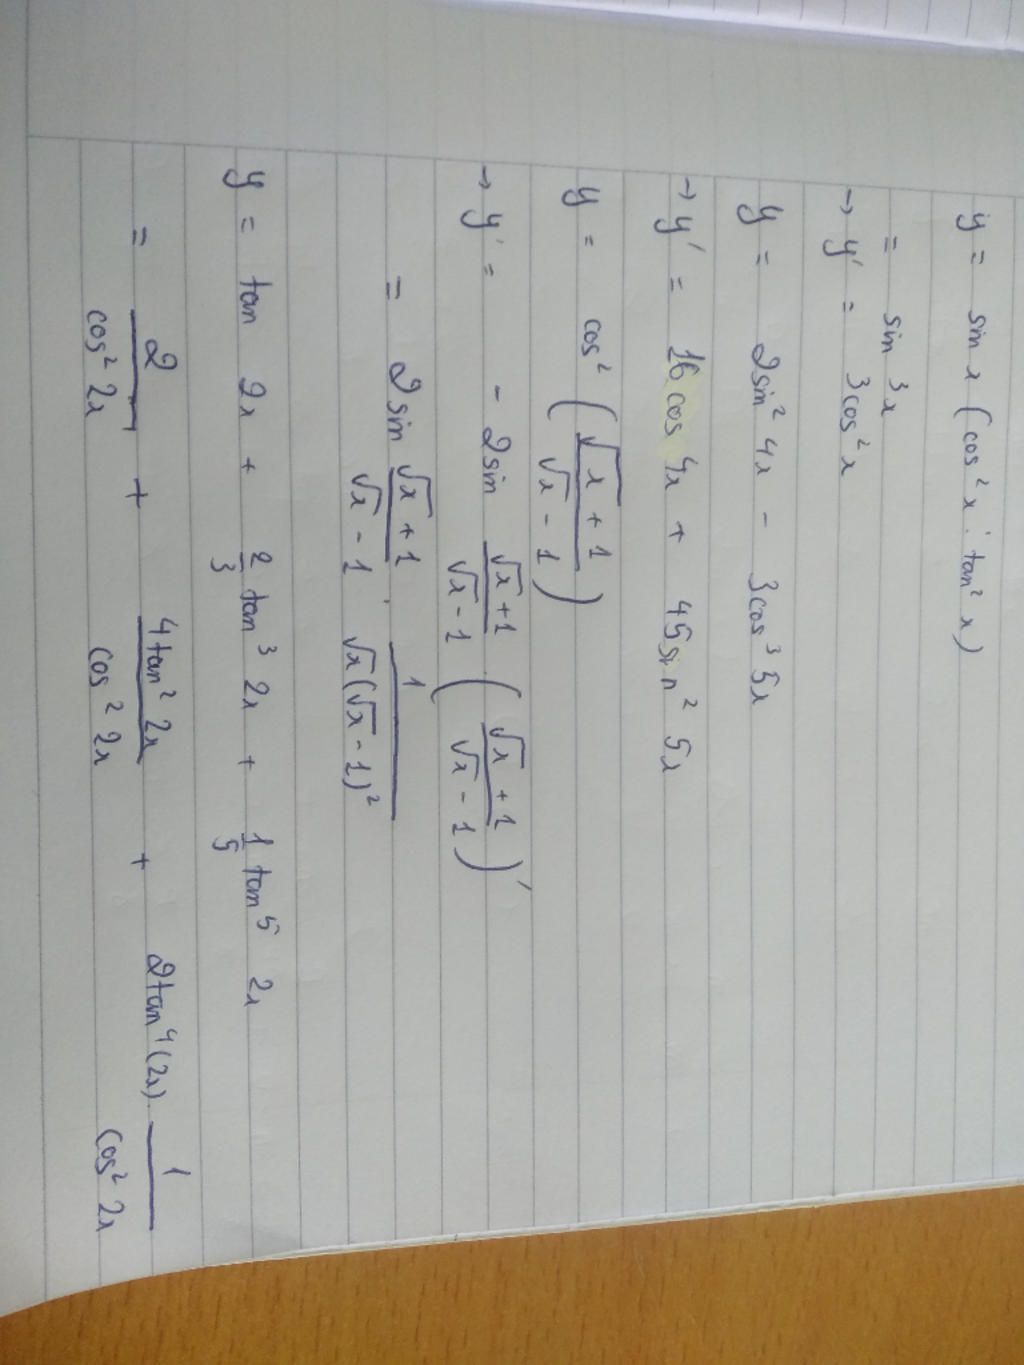 y = sin x (cos² x . tan² x)
= sin³ x
→ y' = 3cos² x
y = 2sin² 4x - 3cos³ 5x
→ y' = 16cos 4x + 45sin² 5x
y = cos² ((√x + 1)/(√x - 1))
→ y' = - 2sin (√x + 1)/(√x - 1) ((√x + 1)/(√x - 1))'
= 2sin (√x + 1)/(√x - 1) . 1/(√x(√x - 1)²)
y = tan 2x + 2/3 tan³ 2x + 1/5 tan⁵ 2x
= 2/(cos² 2x) + (4tan² 2x)/(cos² 2x) + 2tan⁴(2x) . 1/(cos² 2x)